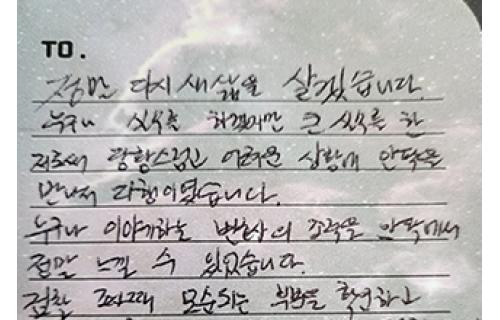 TO.
정말 다시 새 삶을 살겠습니다.
누구나 실수를 하겠지만 큰 실수를 한
저로서 당황스럽고 어려운 상황에 안팍을
만나서 다행이었습니다.
누구나 이야기하는 변호사의 조력을 안팍에서
정말 느낄 수 있었습니다.
검찰 조사때 모순되는 부분을